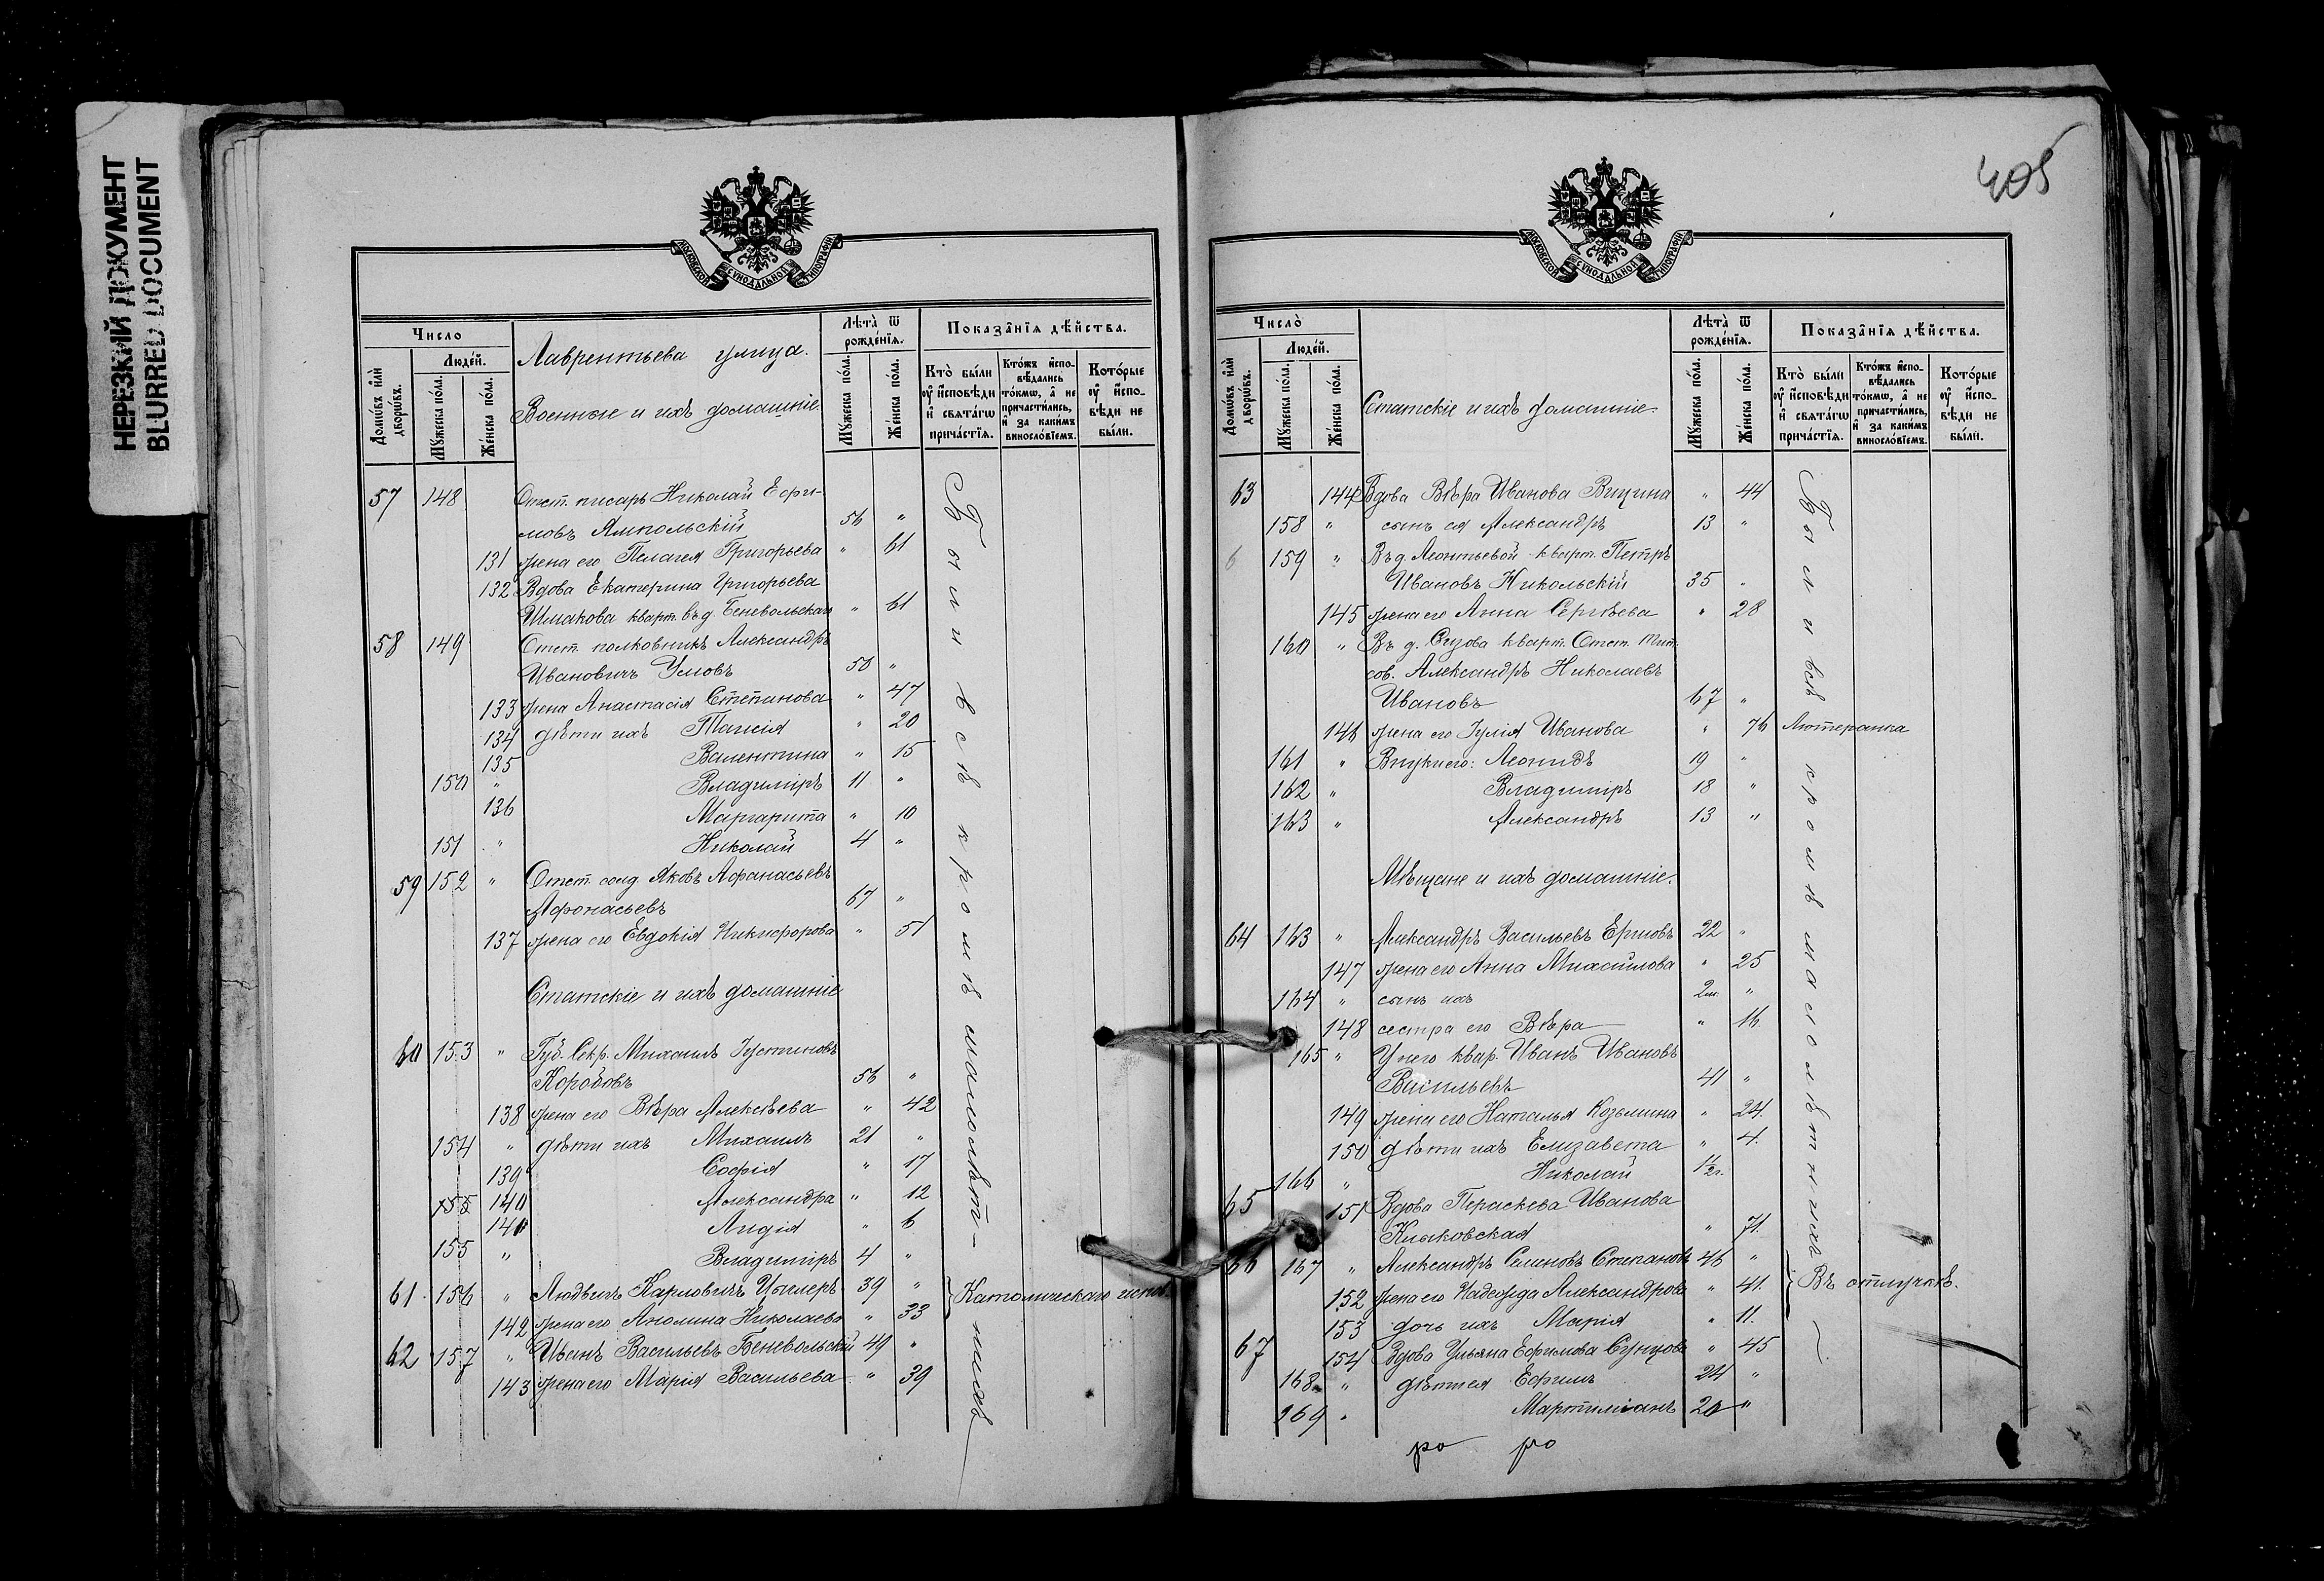 НЕРЕЗКИЙ ДОКУМЕНТ
BLURRED DOCUMENT
МОСКОВСКОЙ СѴНОДАЛЬНОЙ ТИПОГРАФІИ
Число
Людéй.
Домѡвъ и҆лѝ дворѡвъ.
Мꙋ́жеска по́ла.
Же́нска по́ла.
Лаврентьева улица.
Военные и ихъ домашніе.
Лѣта̀ ѿ рожде́нїѧ.
Мꙋ́жеска по́ла.
Же́нска по́ла.
Показа̑нїѧ дѣ́йства.
Кто̀ бы́ли ᲂу҆ и҆сповѣ́ди и҆ свѧта́гѡ прича́стїѧ.
Кто́жъ и҆сповѣ́дались то́кмѡ, а҆ не причасти́лись, и҆ за каки́мъ винослѡ́вїемъ.
Кото́рые ᲂу҆ и҆сповѣ́ди не бы́ли.
57 148 Отст. писарь Николай Ефи-
мовъ Ямпольскій 56 "
131 жена его Пелагея Григорьева " 61
132 Вдова Екатерина Григорьева
Шмакова кварт. въ д. Беневольскаго " 61
58 149 Отст. полковникъ Александръ
Ивановичъ Умовъ 50 "
133 жена Анастасія Степанова " 47
134 дѣти ихъ Таисія " 20
135 Валентина " 15
150 " Владиміръ 11 "
136 Маргарита " 10
151 " Николай 4 "
59 152 " Отст. солд. Яковъ Афанасьевъ
Афонасьевъ 67 "
137 жена его Евдокія Никифорова " 51
Статскіе и ихъ домашніе
60 153 " Губ. Секр. Михаилъ Іустиновъ
Коробовъ 56 "
138 жена его Вѣра Алексѣева " 42
154 " дѣти ихъ Михаилъ 21 "
139 Софія " 17
155 140 Александра " 12
140 Лидія " 6
155 " Владиміръ 4 "
61 156 " Людвигъ Карловичъ 39 " Католическаго испов.
142 жена его Николаева " 33
62 157 " Иванъ Васильевъ Беневольскій 49 "
143 жена его Марія Васильева " 39
Были всѣ кромѣ малолѣт-нихъ
405
МОСКОВСКОЙ СѴНОДАЛЬНОЙ ТИПОГРАФІИ
Число̀
Людéй.
Домѡвъ и҆лѝ дворѡвъ.
Мꙋ́жеска по́ла.
Же́нска по́ла.
Статскіе и ихъ домашніе.
Лѣта̀ ѿ рожде́нїѧ.
Мꙋ́жеска по́ла.
Же́нска по́ла.
Показа̑нїѧ дѣ́йства.
Кто̀ бы́ли ᲂу҆ и҆сповѣ́ди и҆ свѧта́гѡ прича́стїѧ.
Кто́жъ и҆сповѣ́дались то́кмѡ, а҆ не причасти́лись, и҆ за каки́мъ винослѡ́вїемъ.
Кото́рые ᲂу҆ и҆сповѣ́ди не бы́ли.
63 144 Вдова Вѣра Иванова " 44
158 " сынъ ея Александръ 13 "
6 159 " Въ д. Леонтьевой кварт. Петръ
Ивановъ Никольскій 35 "
145 жена его Анна Сергѣева " 28
160 " Въ д. Сизова кварт. Отст. Тит.
сов. Александръ Николаевъ
Ивановъ 67 "
146 жена его Іулія Иванова " 76 Лютеранка
161 " Внуки его: Леонидъ 19 "
162 " Владиміръ 18 "
163 " Александръ 13 "
Мѣщане и ихъ домашніе.
64 163 " Александръ Васильевъ Ершовъ 22 "
147 жена его Анна Михайлова " 25
164 " сынъ ихъ 2м. "
148 сестра его Вѣра " 16.
165 " У него квар. Иванъ Ивановъ
Васильевъ 41 "
149 жена его Наталья Козьмина " 24.
150 дѣти ихъ Елизавета " 4.
166 " Николай 1/2г.
65 151 Вдова Параскева Иванова
" 71.
66 167 " Александръ Семеновъ Степановъ 46 "
152 жена его Надежда Александрова " 41. Въ отлучкѣ.
153 дочь ихъ Марія " 11.
67 154 Вдова Ульяна Ефимова Сунцова " 45
168 " дѣти ея Ефимъ 24 "
169 " Мартиміанъ 20 "
Были всѣ кромѣ малолѣтнихъ